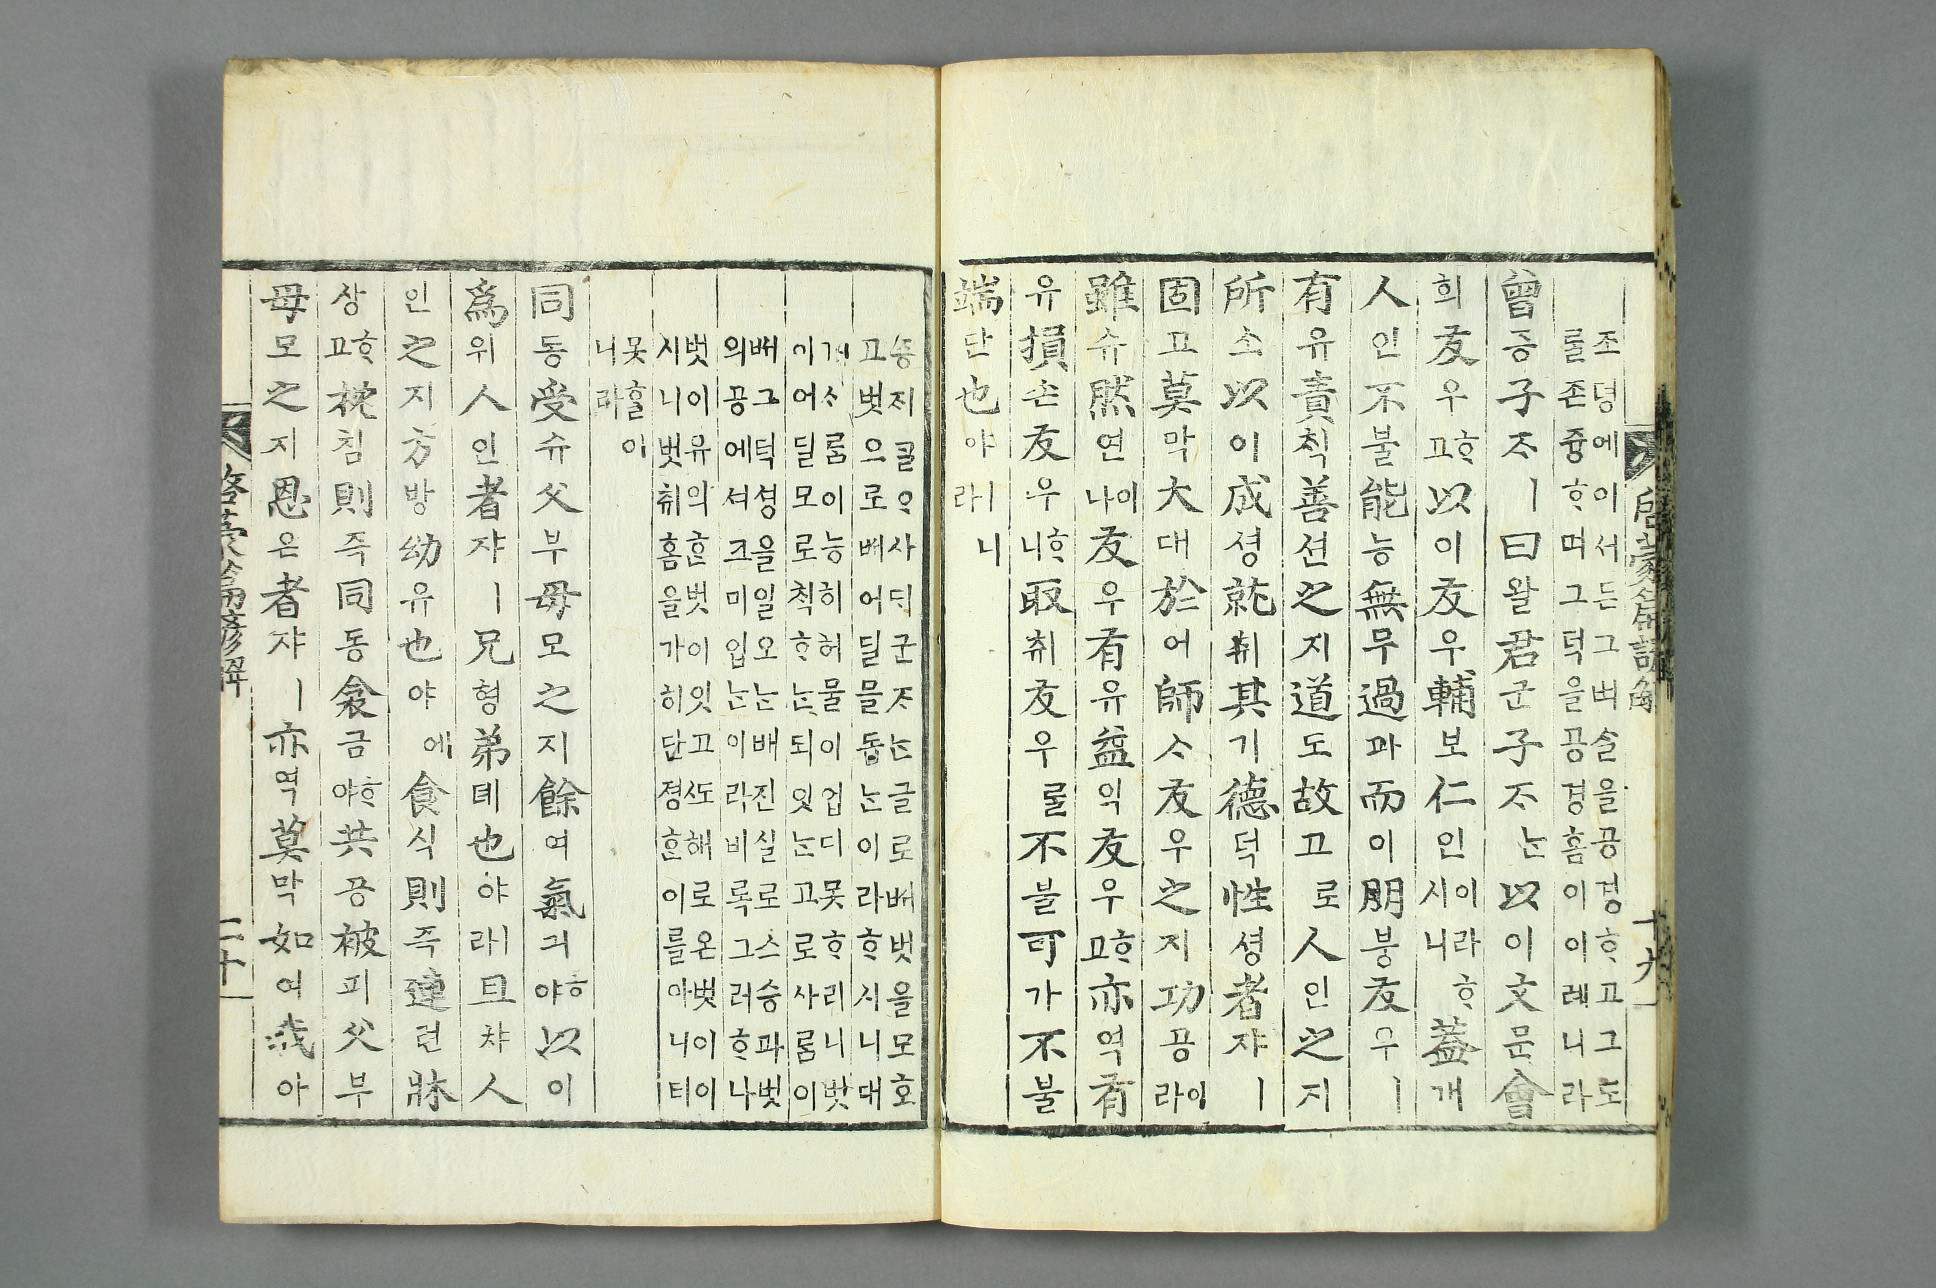 조뎡에이셔든그벼슬을공경ᄒᆞ고그도
를존즁ᄒᆞ며그덕을공경홈이이례니라
曾증子ᄌᆞㅣ曰왈君군子ᄌᆞᄂᆞᆫ以이文문會
희友우ᄒᆞ고以이友우輔보仁인이라ᄒᆞ시니蓋개
人인不불能능無무過과而이朋붕友우ㅣ
有유責ᄎᆡᆨ善션之지道도故고로人인之지
所소以이成셩就취其기德덕性셩者쟈ㅣ
固고莫막大대於어師ᄉᆞ友우之지功공이라
雖슈然연이나友우有유益익友우ᄒᆞ고亦역有
유損손友우ᄒᆞ니取취友우ᄅᆞᆯ不불可가不불
端단也야ㅣ니라
증ᄌᆡ골ᄋᆞ사ᄃᆡ군ᄌᆞᄂᆞᆫ글로ᄡᅥ벗을모호
고벗으로ᄡᅥ어딜믈돕ᄂᆞᆫ이라ᄒᆞ시니대
개ᄉᆞᄅᆞᆷ이능히허믈이업디못ᄒᆞ리니벗
이어딜모로ᄎᆡᆨᄒᆞᄂᆞᆫ되잇ᄂᆞᆫ고로사ᄅᆞᆷ이
ᄡᅥ그덕셩을일오ᄂᆞᆫ배진실로스승과벗
의공에셔크미입ᄂᆞᆫ이라비록그러ᄒᆞ나
벗이유의ᄒᆞᆫ벗이잇고ᄯᅩ해로온벗이이
시니벗취홈을가히단졍ᄒᆞᆫ이를아니티
못ᄒᆞᆯ이
니라
同동受슈父부母모之지餘여氣긔ᄒᆞ야以이
爲위人인者쟈ㅣ兄형弟뎨也야ㅣ라且챠人
인之지方방幼유也야에食식則즉連련牀
상ᄒᆞ고枕침則즉同동衾금ᄒᆞ야共공被피父부
母모之지恩은者쟈ㅣ亦역莫막如여我아
啓蒙篇諺解
二十